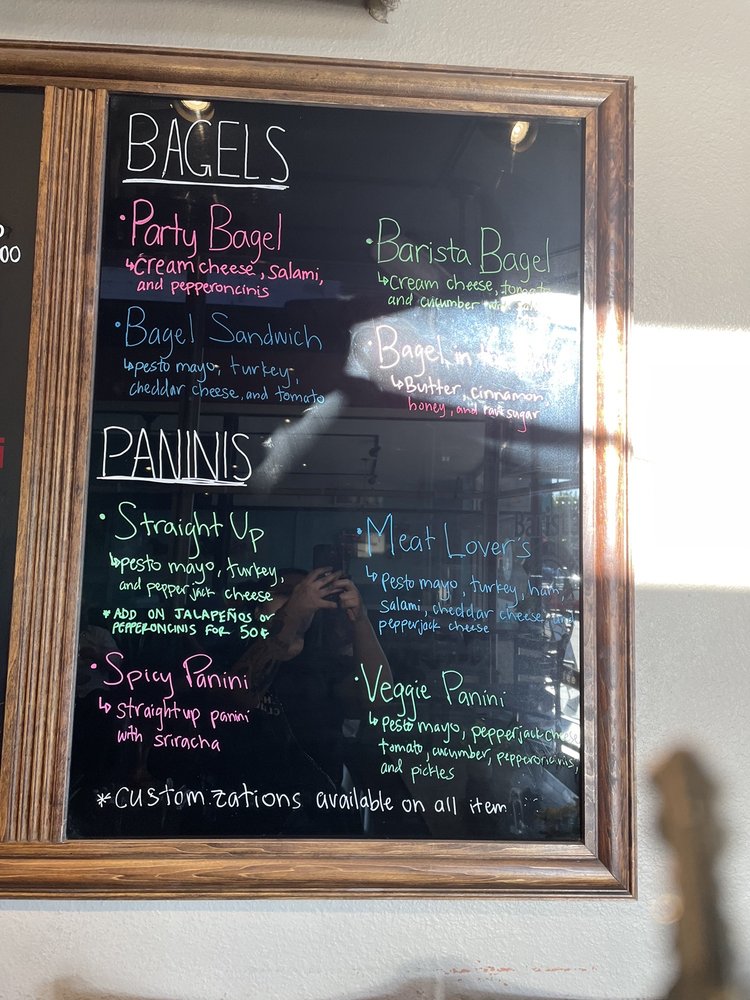 BAGELS
• Party Bagel
↳ Cream cheese, salami,
and pepperoncinis
• Barista Bagel
↳ Cream cheese, tomato
and cucumber
• Bagel Sandwich
↳ pesto mayo, turkey,
cheddar cheese, and tomato
• Bagel in
↳ Butter, cinnamon
honey, and raw sugar
PANINIS
• Straight Up
↳ pesto mayo, turkey,
and pepperjack cheese
* ADD ON JALAPEÑOS or
PEPPERONCINIS FOR 50¢
• Meat Lover's
↳ pesto mayo, turkey, ham,
salami, cheddar cheese, and
pepperjack cheese
• Spicy Panini
↳ straight up panini
with sriracha
• Veggie Panini
↳ pesto mayo, pepperjack
tomato, cucumber, pepperoncinis,
and pickles
* customizations available on all item